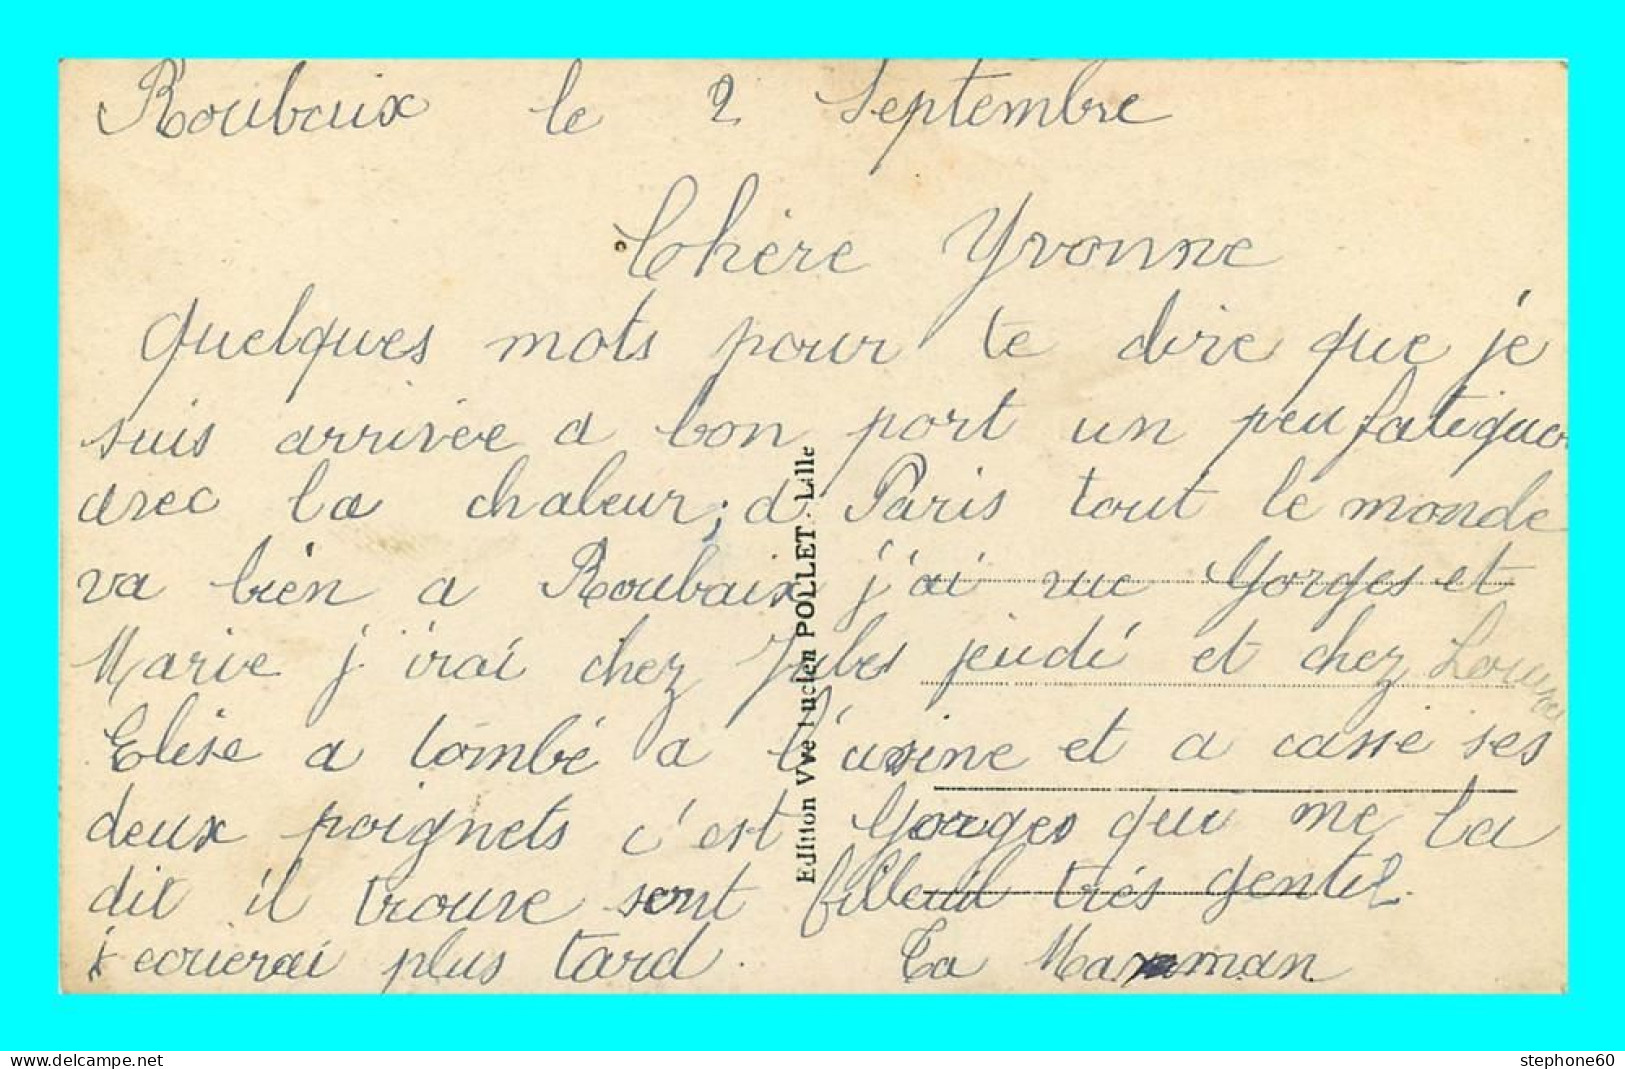 Roubaix le 2 Septembre
Chère Yvonne
quelques mots pour te dire que je
suis arrivée a bon port un peu fatiguo
avec la chaleur; a Paris tout le monde
va bien a Roubaix j'ai vue Gorges et
Marie j'irai chez Jules jeudi et chez
Elise a tombé a l'usine et a casse ses
deux poignets c'est Gorges qui me la
dit il trouve sont filleuil très gentil.
j ecrierai plus tard. Ta Maman
Edition Vve Lucien POLLET - Lille
stephone60
www.delcampe.net